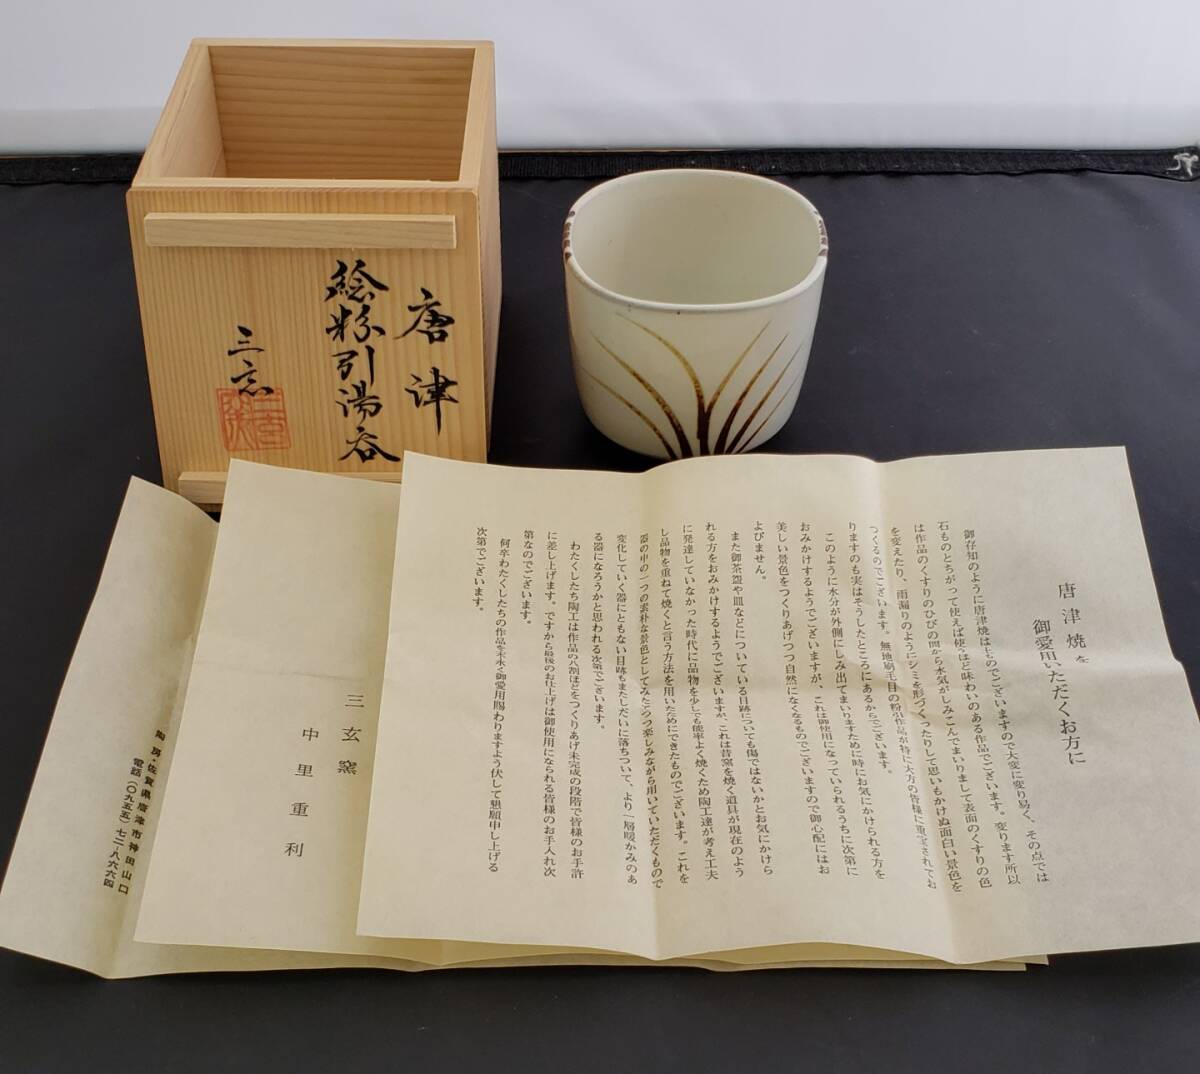 唐津
絵粉引湯呑
三玄
唐津焼を
御愛用いただくお方に
御存知のように唐津焼は土のでございますので大変に変り易く、その点では
石ものとちがって使えば使うほど味わいのある作品でございます。変ります所以
は作品のくすりのひびの間から水気がしみこんでまいりまして表面のくすりの色
を変えたり、雨漏りのようにシミを形づくったりして思いもかけぬ面白い景色を
つくるのでございます。無地刷毛目の粉引作品が特に大方の皆様に重宝されてお
りますのも実はそうしたところにあるからでございます。
このように水分が外側にしみ出てまいりますために時にお気にかけられる方を
おみかけするようでございますが、これは御使用になっていられるうちに次第に
美しい景色をつくりあげつつ自然になくなるものでございますので御心配にはお
よびません。
また御茶盌や皿などについている目跡についても傷ではないかとお気にかけら
れる方をおみかけするようでございますが、これは昔窯を焼く道具が現在のよう
に発達していなかった時代に品物を少しでも能率よく焼くため陶工達が考え工夫
し品物を重ねて焼くと言う方法を用いたためにできたものでございます。これを
器の中の一つの素朴な景色としてみたてつつ楽しみながら用いていただくもので
変化していく器にともない目跡もまたしだいに落ちついて、より一層暖かみのあ
る器になろうかと思われる次第でございます。
わたくしたち陶工は作品の八割ほどをつくりあげ未完成の段階で皆様のお手許
に差し上げます。ですから最後のお仕上げは御使用になられる皆様のお手入れ次
第なのでございます。
何卒わたくしたちの作品を末永く御愛用賜わりますよう伏して懇願申し上げる
次第でございます。
三玄窯
中里重利
陶房・佐賀県唐津市神田山口
電話(〇九五五)七二-八六六四